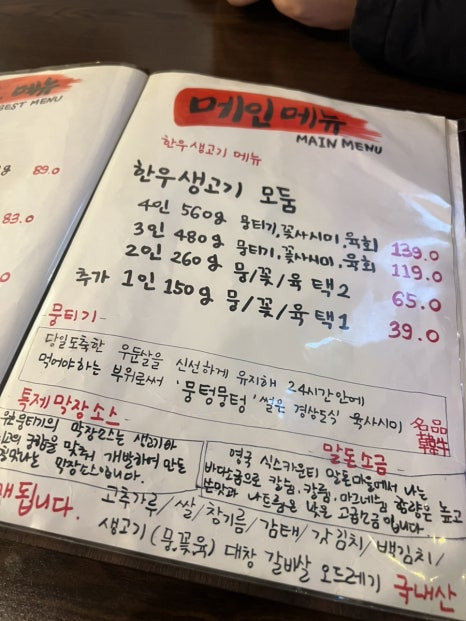 메뉴
BEST MENU
g 89.0
83.0
0
메인메뉴
MAIN MENU
한우생고기 메뉴
한우생고기 모둠
4인 560g 뭉티기,꽃사시미,육회 139.0
3인 480g 뭉티기,꽃사시미,육회 119.0
2인 260g 뭉/꽃/육 택2 65.0
추가 1인 150g 뭉/꽃/육 택1 39.0
뭉티기
당일도축한 우둔살을 신선하게 유지해 24시간안에
먹어야하는 부위로써 '뭉텅뭉텅' 썰은 경상도식 육사시미
名品
韓牛
특제 막장소스
뭉티기의 막장소스는 생고기와
궁합을 맞춰 개발하여 만든
막장소스입니다.
말돈소금
영국 식스카운티 말돈마을에서 나는
바닷소금으로 칼슘, 칼륨, 마그네슘 함량은 높고
쓴맛과 나트륨은 낮은 고급소금입니다.
됩니다.
고춧가루/쌀/참기름/감태/갓김치/백김치/
생고기(뭉.꽃.육) 대창 갈비살 오드레기 국내산